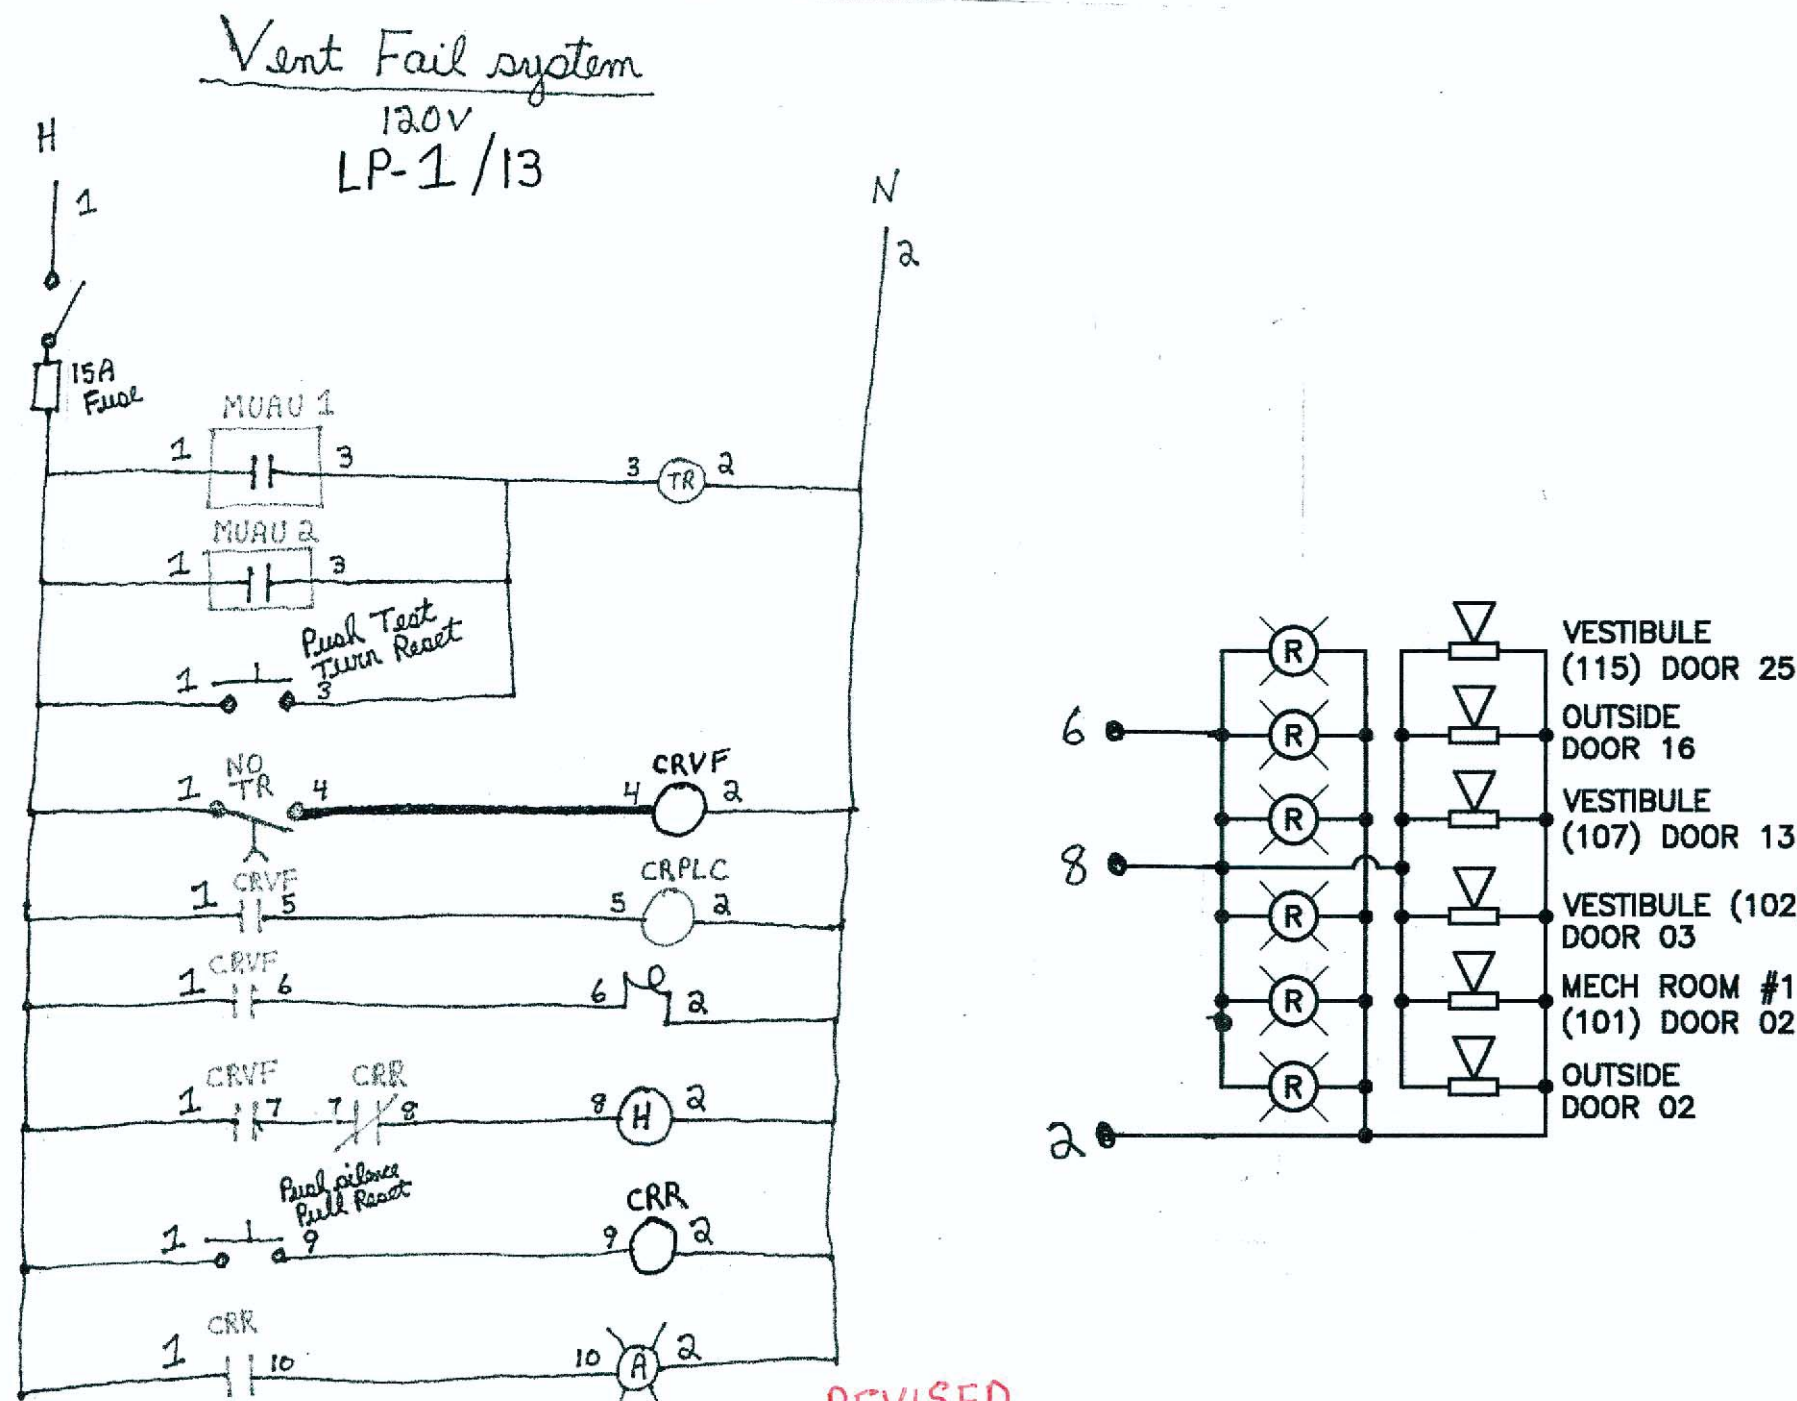 Vent Fail system
120V
LP-1/13
H
1
N
2
15A
Fuse
MUAU 1
1 3 3 TR 2
MUAU 2
1 3
Push Test
Turn Reset
1 3
NO
TR
CRVF
1 4 4 2
CRVF
CRPLC
1 5 5 2
CRVF
1 6 6 2
CRVF CRR
1 7 7 8 8 H 2
Push silence
Pull Reset
CRR
1 9 9 2
CRR
1 10 10 A 2
REVISED
6
8
2
R
R
R
R
R
R
VESTIBULE
(115) DOOR 25
OUTSIDE
DOOR 16
VESTIBULE
(107) DOOR 13
VESTIBULE (102
DOOR 03
MECH ROOM #1
(101) DOOR 02
OUTSIDE
DOOR 02